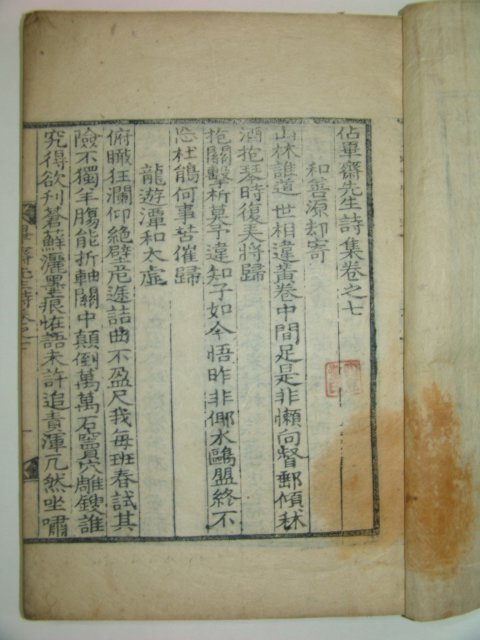 佔畢齋先生詩集卷之七
和善源却寄
山林誰道世相違黃卷中間足是非懶向督郵傾秫
酒抱琴時復美將歸
抱關擊柝莫予違知子如今悟昨非倻水鷗盟終不
忘杜鵑何事苦催歸
龍遊潭和太虛
俯瞰狂瀾仰絶壁危途詰曲不盈尺我每班春試其
險不獨羊膓能折軸關中顚倒萬萬石竇穴雕鎪誰
究得欲刋蒼蘚灑墨痕恠語未許追責渾兀然坐嘯